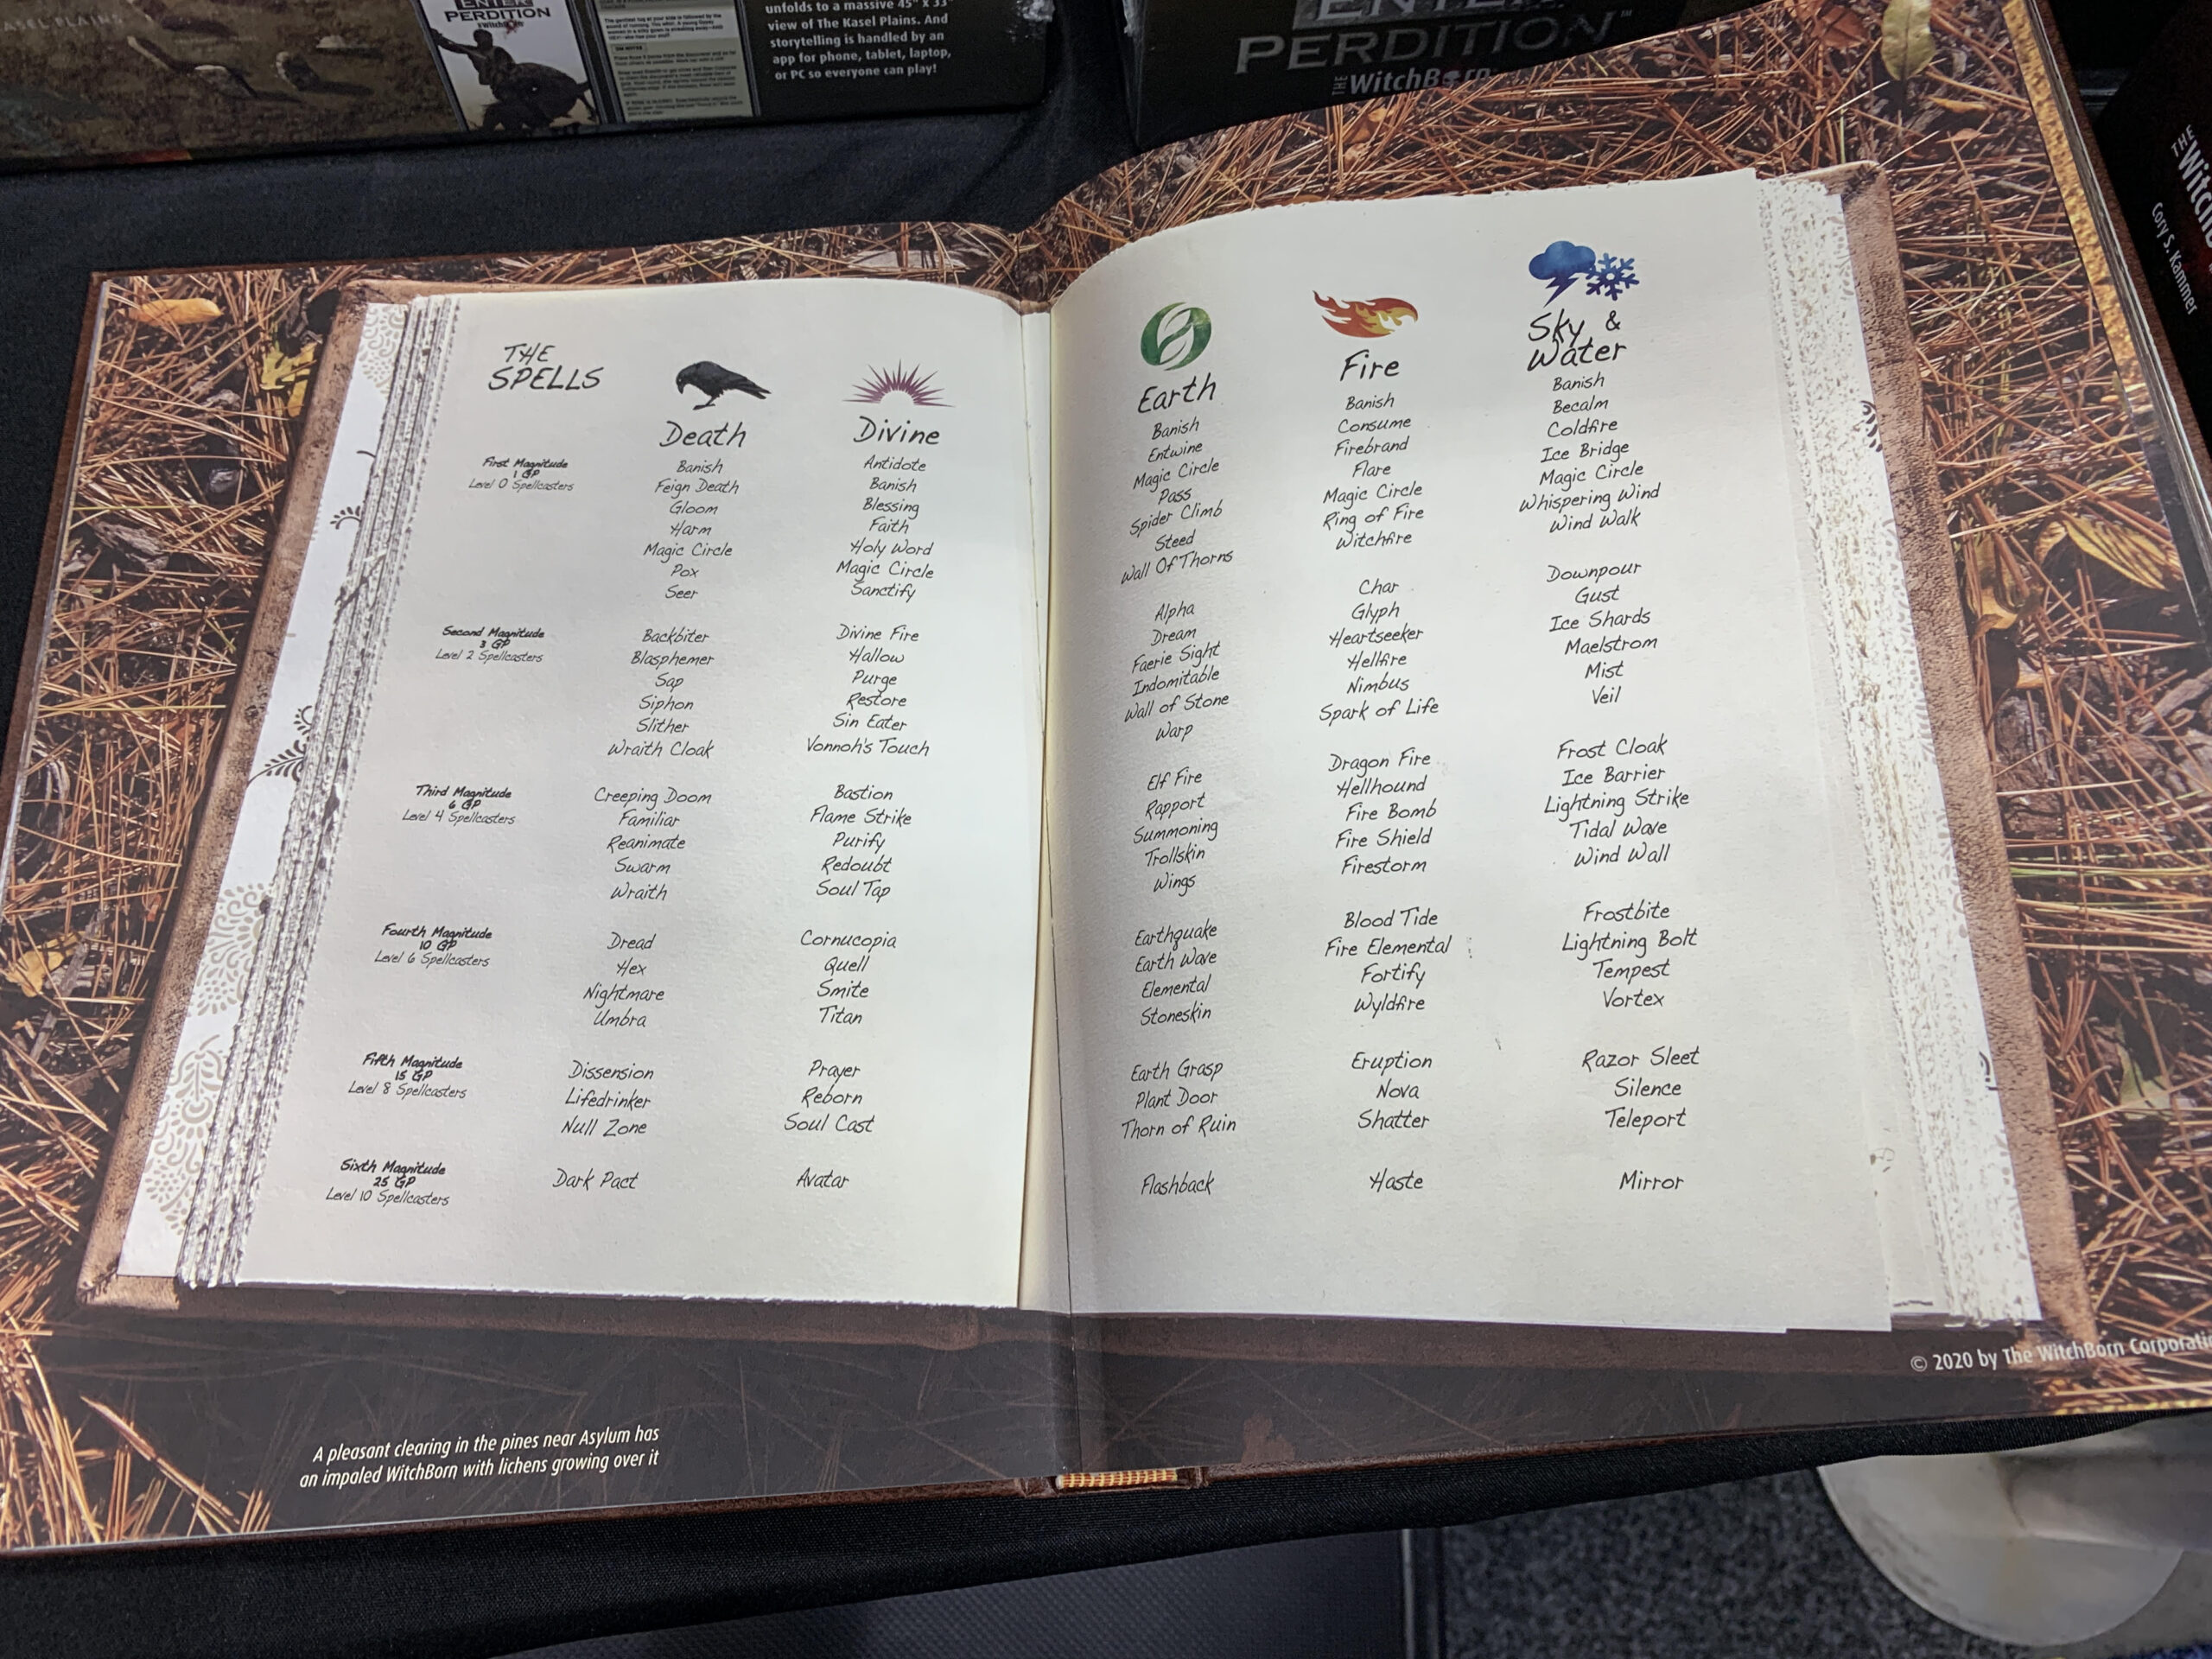 ASEL PLAINS
ENTER
PERDITION
unfolds to a massive 45" x 33"
view of The Kasel Plains. And
storytelling is handled by an
app for phone, tablet, laptop,
or PC so everyone can play!
ENTER
PERDITION™
THE WitchBorn
THE
Cory S. Kammer
THE
SPELLS
Death
Divine
First Magnitude
1 GP
Level 0 Spellcasters
Banish
Feign Death
Gloom
Harm
Magic Circle
Pox
Seer
Antidote
Banish
Blessing
Faith
Holy Word
Magic Circle
Sanctify
Second Magnitude
3 GP
Level 2 Spellcasters
Backbiter
Blasphemer
Sap
Siphon
Slither
Wraith Cloak
Divine Fire
Hallow
Purge
Restore
Sin Eater
Vonnoh's Touch
Third Magnitude
6 GP
Level 4 Spellcasters
Creeping Doom
Familiar
Reanimate
Swarm
Wraith
Bastion
Flame Strike
Purify
Redoubt
Soul Tap
Fourth Magnitude
10 GP
Level 6 Spellcasters
Dread
Hex
Nightmare
Umbra
Cornucopia
Quell
Smite
Titan
Fifth Magnitude
15 GP
Level 8 Spellcasters
Dissension
Lifedrinker
Null Zone
Prayer
Reborn
Soul Cast
Sixth Magnitude
25 GP
Level 10 Spellcasters
Dark Pact
Avatar
Earth
Banish
Entwine
Magic Circle
Pass
Spider Climb
Steed
Wall Of Thorns
Alpha
Dream
Faerie Sight
Indomitable
Wall of Stone
Warp
Elf Fire
Rapport
Summoning
Trollskin
Wings
Earthquake
Earth Wave
Elemental
Stoneskin
Earth Grasp
Plant Door
Thorn of Ruin
Flashback
Fire
Banish
Consume
Firebrand
Flare
Magic Circle
Ring of Fire
Witchfire
Char
Glyph
Heartseeker
Hellfire
Nimbus
Spark of Life
Dragon Fire
Hellhound
Fire Bomb
Fire Shield
Firestorm
Blood Tide
Fire Elemental
Fortify
Wyldfire
Eruption
Nova
Shatter
Haste
Sky &
Water
Banish
Becalm
Coldfire
Ice Bridge
Magic Circle
Whispering Wind
Wind Walk
Downpour
Gust
Ice Shards
Maelstrom
Mist
Veil
Frost Cloak
Ice Barrier
Lightning Strike
Tidal Wave
Wind Wall
Frostbite
Lightning Bolt
Tempest
Vortex
Razor Sleet
Silence
Teleport
Mirror
A pleasant clearing in the pines near Asylum has
an impaled WitchBorn with lichens growing over it
© 2020 by The WitchBorn Corporati